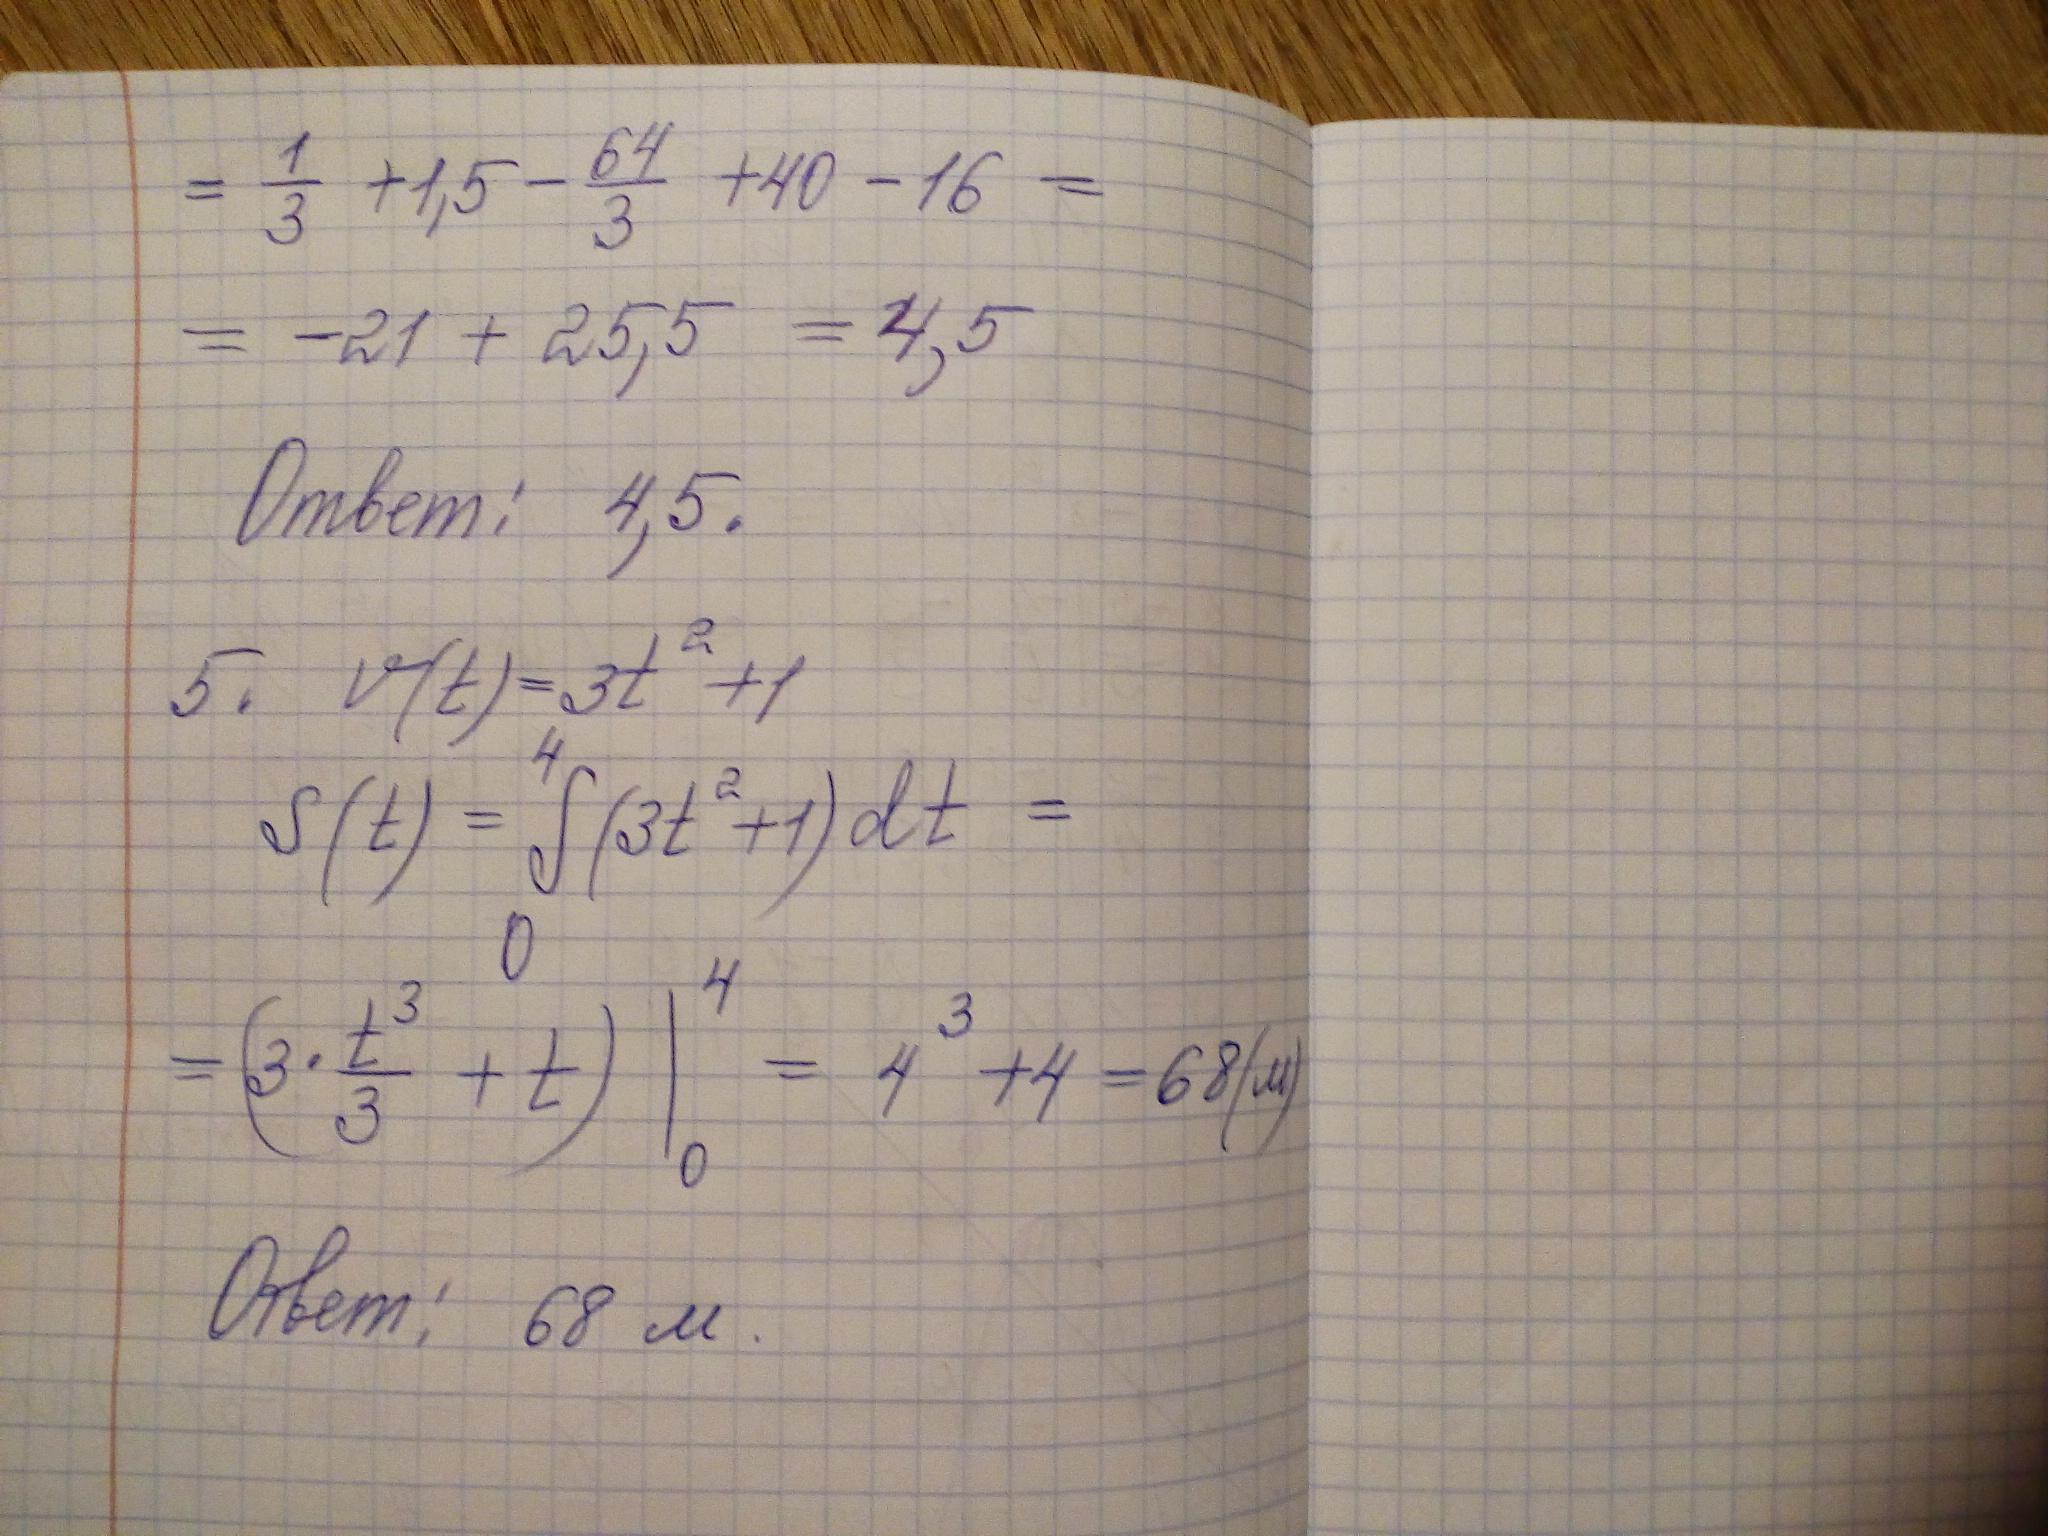 = 1/3 + 1,5 - 64/3 + 40 - 16 =
= -21 + 25,5 = 4,5
Ответ: 4,5.
5. v(t) = 3t² + 1
S(t) = ∫₀⁴ (3t² + 1) dt =
= (3 · t³/3 + t) |₀⁴ = 4³ + 4 = 68 (м)
Ответ: 68 м.